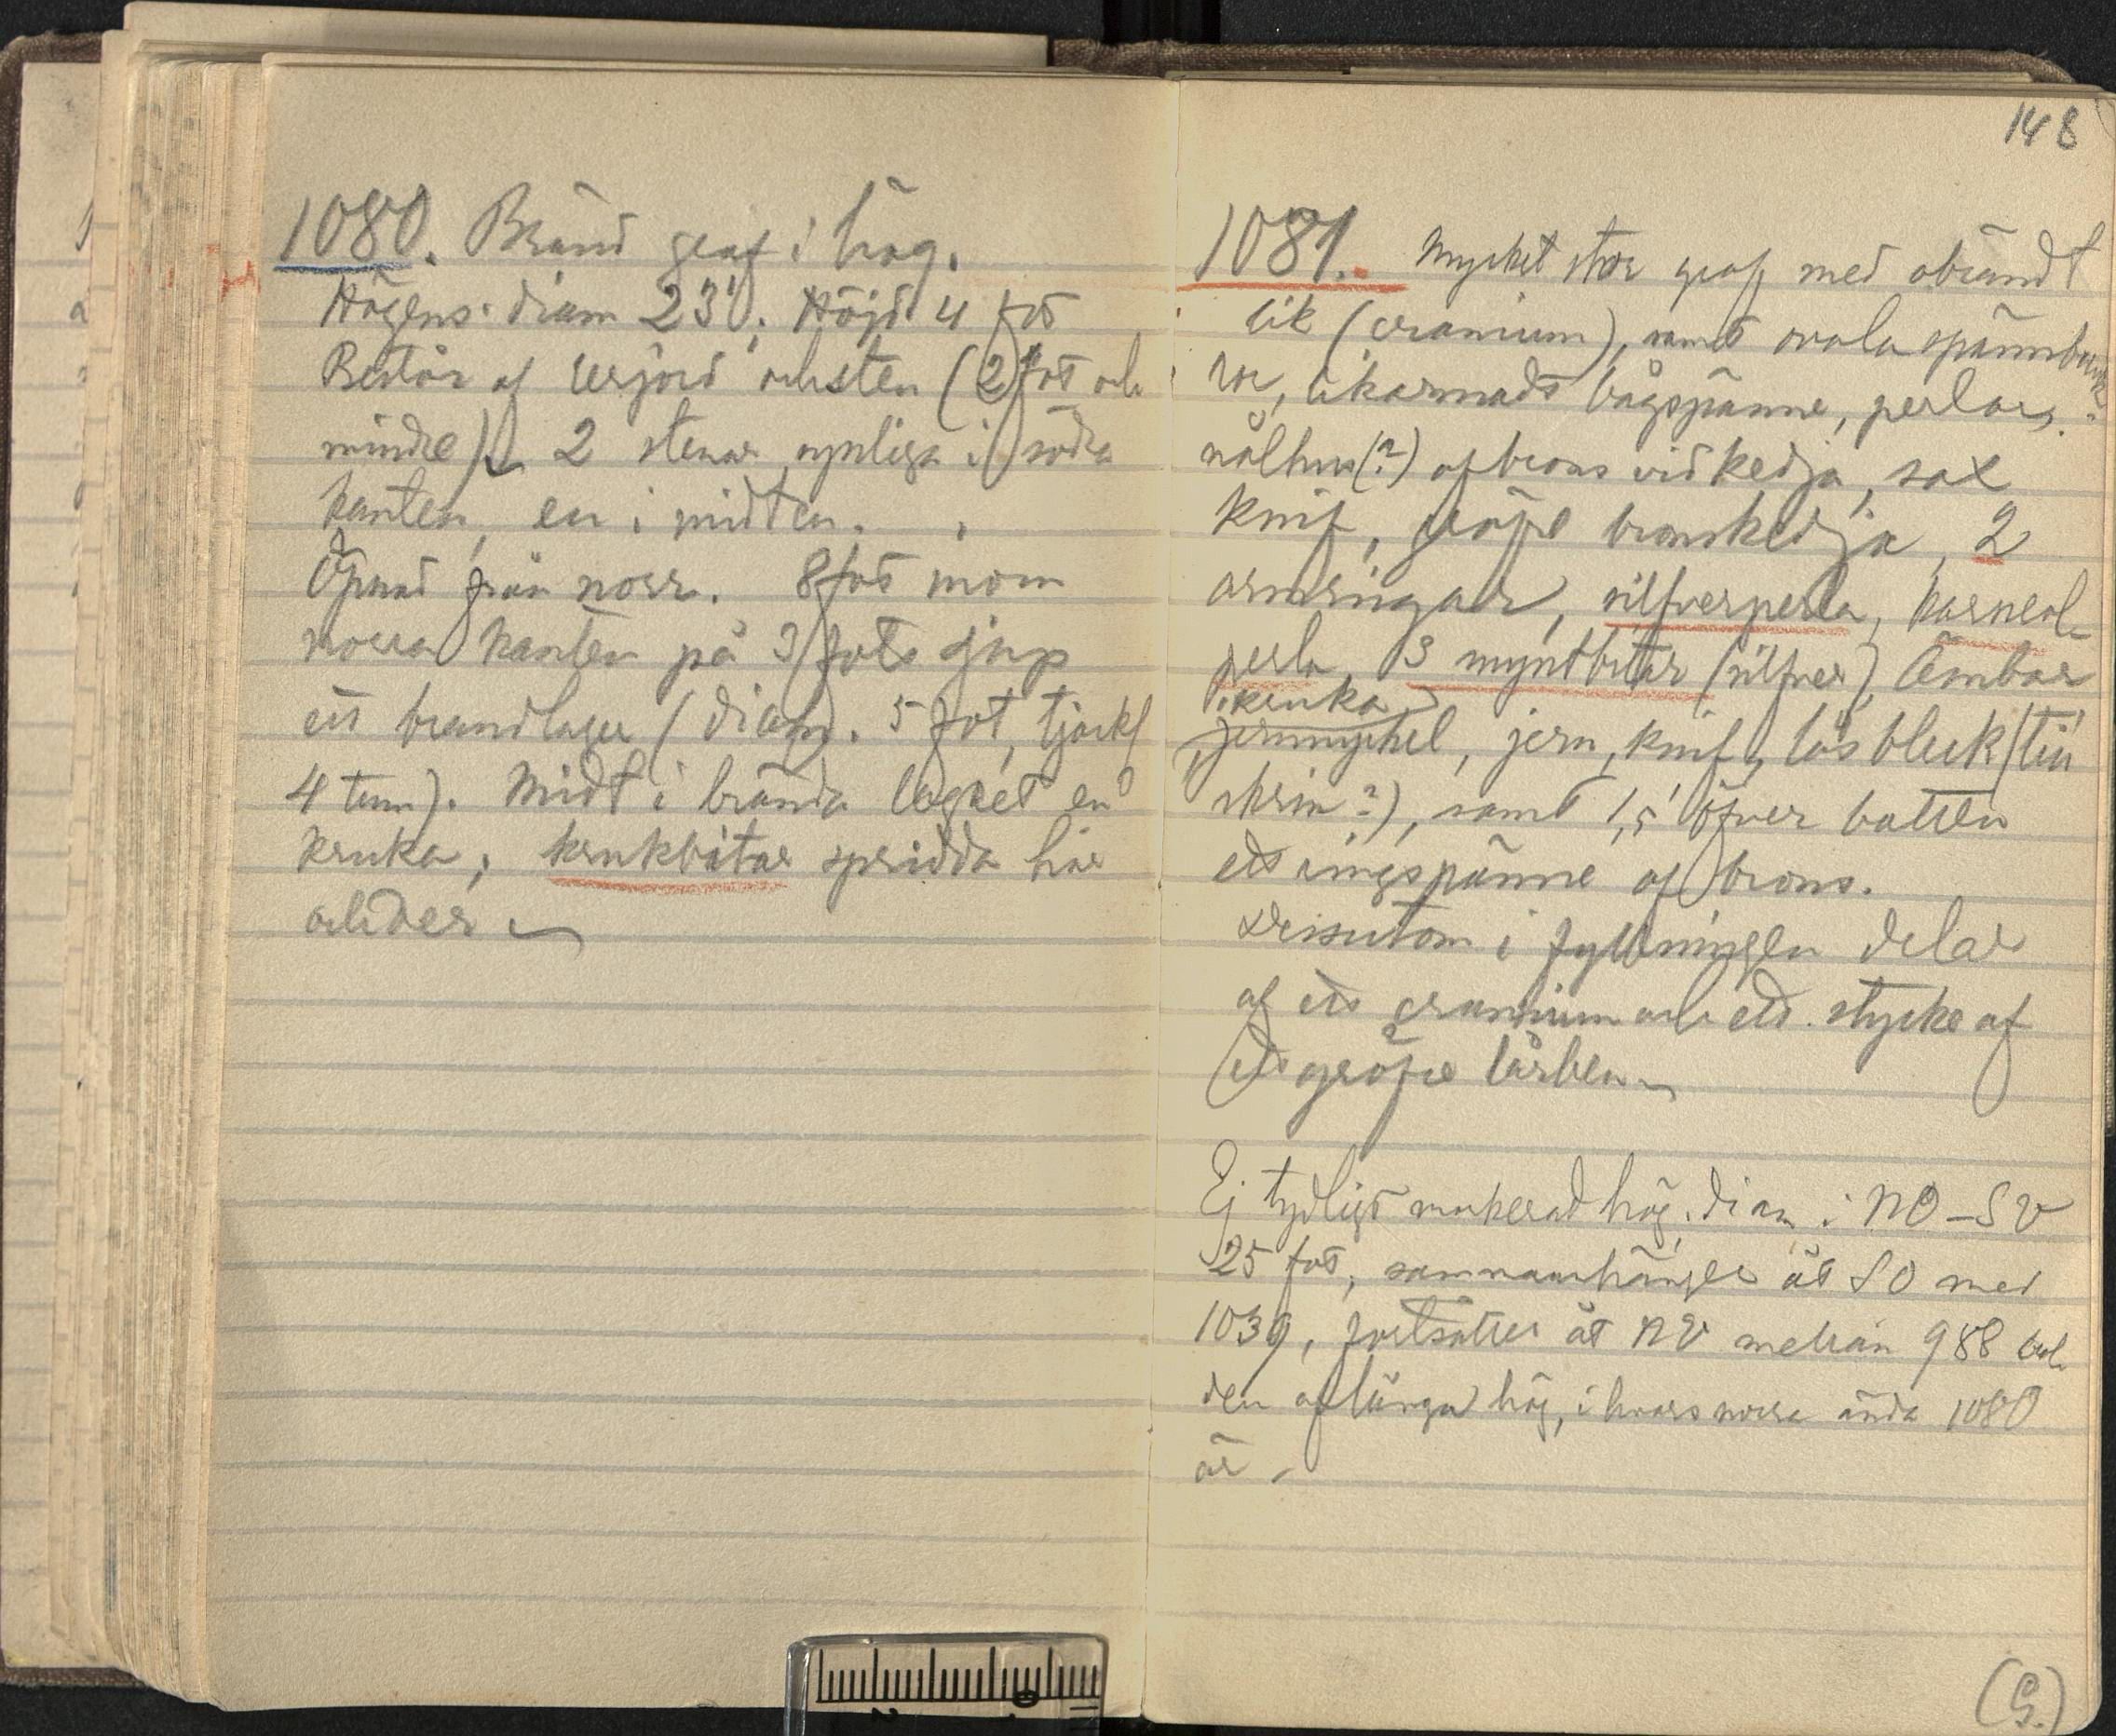 1080. Bränd graf i hög.
Högens diam 23'. Höjd 4 fot
Består af lerjord och sten (2 fot och
mindre). 2 stenar synliga i södra
kanten, en i midten.
Öpnad från norr. 8 fot inom
norra kanten på 3 fots djup
ett brandlager (diam. 5 fot, tjockl
4 tum). Midt i brända lagret en
kruka, krukbitar spridda här
och der
148
1081. Mycket stor graf med obrändt
lik (cranium), samt ovala spännbuck-
lor, likarmadt bågspänne, perlor,
nålhus(?) af brons vid kedja, sax
knif, gröfre bronskedja, 2
armringar, silfverperla, karneol-
perla, 3 myntbitar (silfver), Ämbar
kruka
jernnyckel, jern, knif, lås bleck (till
skrin?), samt 1,5' öfver botten
ett ringspänne af brons.
Dessutom i fyllningen delar
af ett cranium och ett stycke af
ett gröfre lårben
Ej tydligt markerad hög, diam i NO-SV
25 fot, sammanhänger åt SO med
1039, fortsätter åt NV mellan 988 och
den aflånga hög, i hvars norra ända 1080
är
(G.)